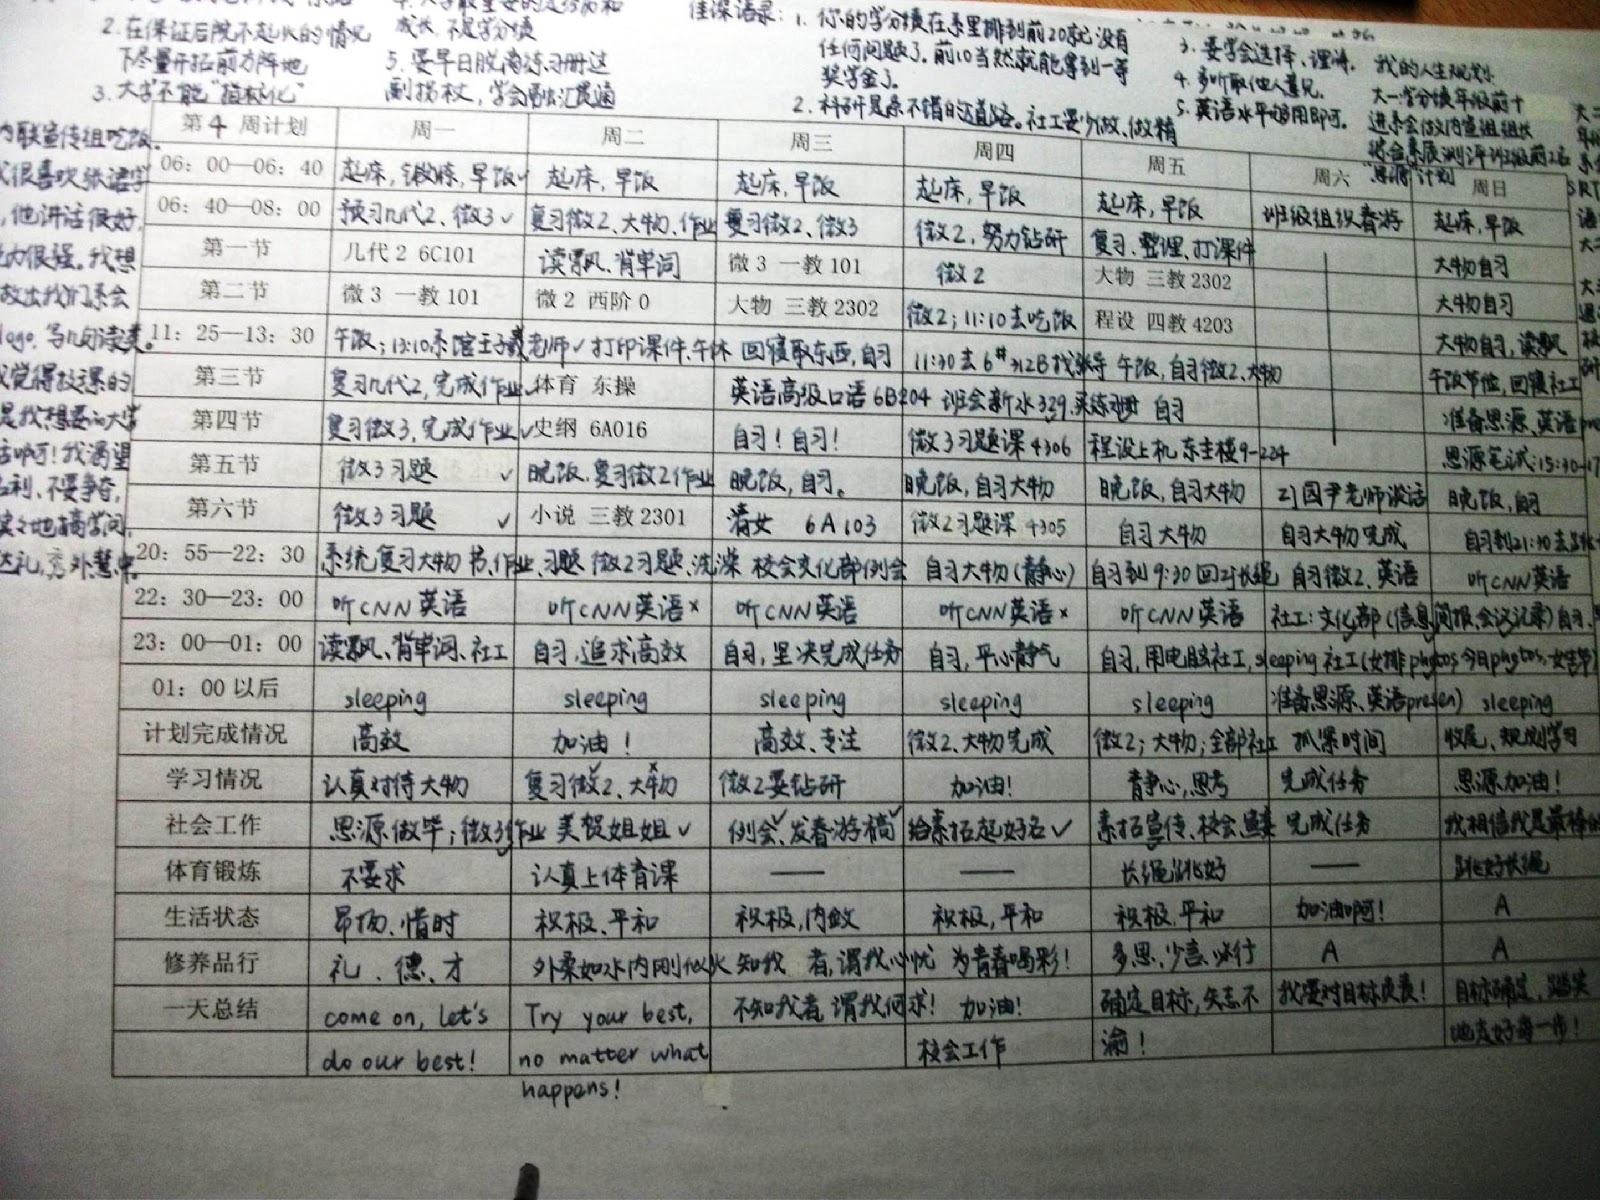 2.在保证后院不起火的情况
下尽量开拓前方阵地
3.大学不能"指标化"
成长,不是学分绩
5.要早日脱离练习册这
副拐杖,学会融汇贯通
佳深语录:1.你的学分绩在系里排到前20就没有
任何问题了。前10当然就能拿到一等
奖学金了。
2.科研是条不错的道路。社工要少做、做精
3.要学会选择、理清.
4.多听取他人意见.
5.英语水平够用即可。
我的人生规划
大一:学分绩年级前十
进系会做内宣组组长
综合素质测评班级前2名
"思源"计划
内联宣传组吃饭。
他讲话很好,
力很强。我想
做出我们系会
logo.
觉得
是我想要的大学
生活啊!我渴望
名利、不要争夺,
实实地搞学问,
达礼,秀外慧中。
第4周计划 周一 周二 周三 周四 周五 周六 周日
06:00—06:40 起床,锻炼,早饭✓ 起床,早饭 起床,早饭 起床,早饭 起床,早饭 起床,早饭
06:40—08:00 预习几代2、微3✓ 复习微2、大物、作业 复习微2、微3 微2,努力钻研 复习、整理、打课件 班级组织春游 大物自习
第一节 几代2 6C101 读飘、背单词 微3 一教101 微2 大物 三教2302 大物自习
第二节 微3 一教101 微2 西阶0 大物 三教2302 微2;11:10去吃饭 程设 四教4203 大物自习,读飘
11:25—13:30 午饭;13:10系馆王子羲老师✓ 打印课件,午休 回寝取东西,自习 11:30去6#312B找张导 午饭,自习微2、大物 午饭节俭,回寝社工
第三节 复习几代2,完成作业✓ 体育 东操 英语高级口语6B204 班会新水329,买练习册 自习 准备思源、英语pre
第四节 复习微3,完成作业✓ 史纲 6A016 自习!自习! 微3习题课4306 程设上机 东主楼9-224 思源笔试:15:30-17
第五节 微3习题 ✓ 晚饭,复习微2作业 晚饭,自习。 晚饭,自习大物 晚饭,自习大物 与国尹老师谈话 晚饭,自习
第六节 微3习题 ✓ 小说 三教2301 清女 6A103 微2习题课 4305 自习大物 自习大物完成 自习到21:30去
20:55—22:30 系统复习大物 书、作业、习题 微2习题、洗澡 校会文化部例会 自习大物(静心) 自习到9:30回 长绳 自习微2、英语 听CNN英语
22:30—23:00 听CNN英语 听CNN英语× 听CNN英语 听CNN英语× 听CNN英语 社工:文化部(信息简报、会议记录)自习、
23:00—01:00 读飘、背单词、社工 自习,追求高效 自习,坚决完成任务 自习,平心静气 自习,用电脑社工,sleeping 社工(女排photos今日photos、女生节)
01:00以后 sleeping sleeping sleeping sleeping sleeping 准备思源、英语presen) sleeping
计划完成情况 高效 加油! 高效、专注 微2、大物完成 微2;大物;全部社工 抓紧时间 收尾、规划学习
学习情况 认真对待大物 复习微2✓、大物× 微2要钻研 加油! 静心,思考 完成任务 思源加油!
社会工作 思源做毕;微3作业 美贺姐姐✓ 例会✓、发春游稿✓ 给素拓起好名✓ 素拓宣传、校会 完成任务 我相信我是最棒的
体育锻炼 不要求 认真上体育课 —— —— 长绳跳好 —— 跳好长绳
生活状态 昂扬、惜时 积极、平和 积极,内敛 积极,平和 积极,平和 加油啊! A
修养品行 礼、德、才 外柔如水内刚似火 知我者,谓我心忧 为青春喝彩! 多思、少言、必行 A A
一天总结 come on, let's Try your best, 不知我者,谓我何求! 加油! 确定目标,矢志不 我要对目标负责! 目标确定,踏实
do our best! no matter what 校会工作 渝! 地走好每一步!
happens!